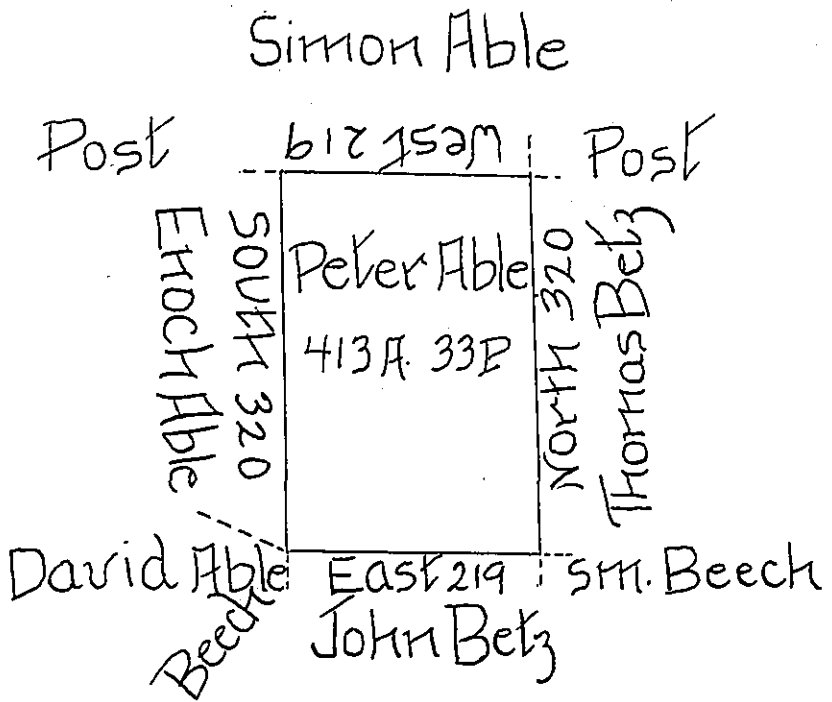 Simon Able
Post
West 219
Post
Enoch Able
South 320
Peter Able
413 A. 33 P
North 320
Thomas Betz
David Able
East 219
Sm. Beech
Beech
John Betz